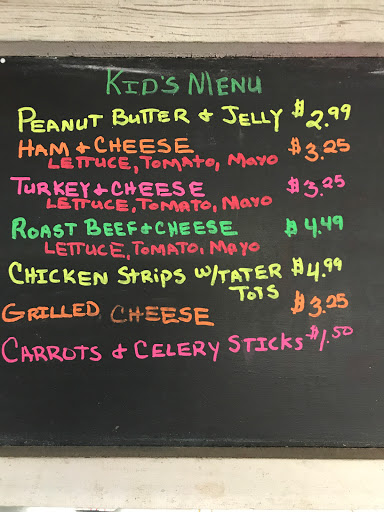 KID'S MENU
PEANUT BUTTER & JELLY $2.99
HAM & CHEESE $3.25
LETTUCE, TOMATO, MAYO
TURKEY & CHEESE $3.25
LETTUCE, TOMATO, MAYO
ROAST BEEF & CHEESE $4.49
LETTUCE, TOMATO, MAYO
CHICKEN STRIPS W/TATER $4.99
TOTS
GRILLED CHEESE $3.25
CARROTS & CELERY STICKS $1.50